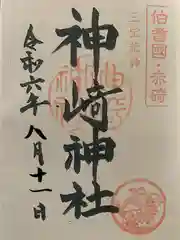 伯耆國・赤碕
三宝荒神
神崎神社
令和六年八月十一日